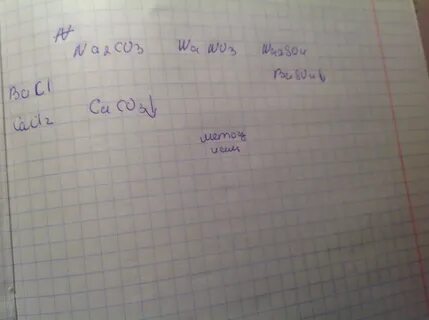 Na2CO3 Na NO3 Na2SO4
BaSO4↓
BaCl
CaCl2 CaCO3↓
метод